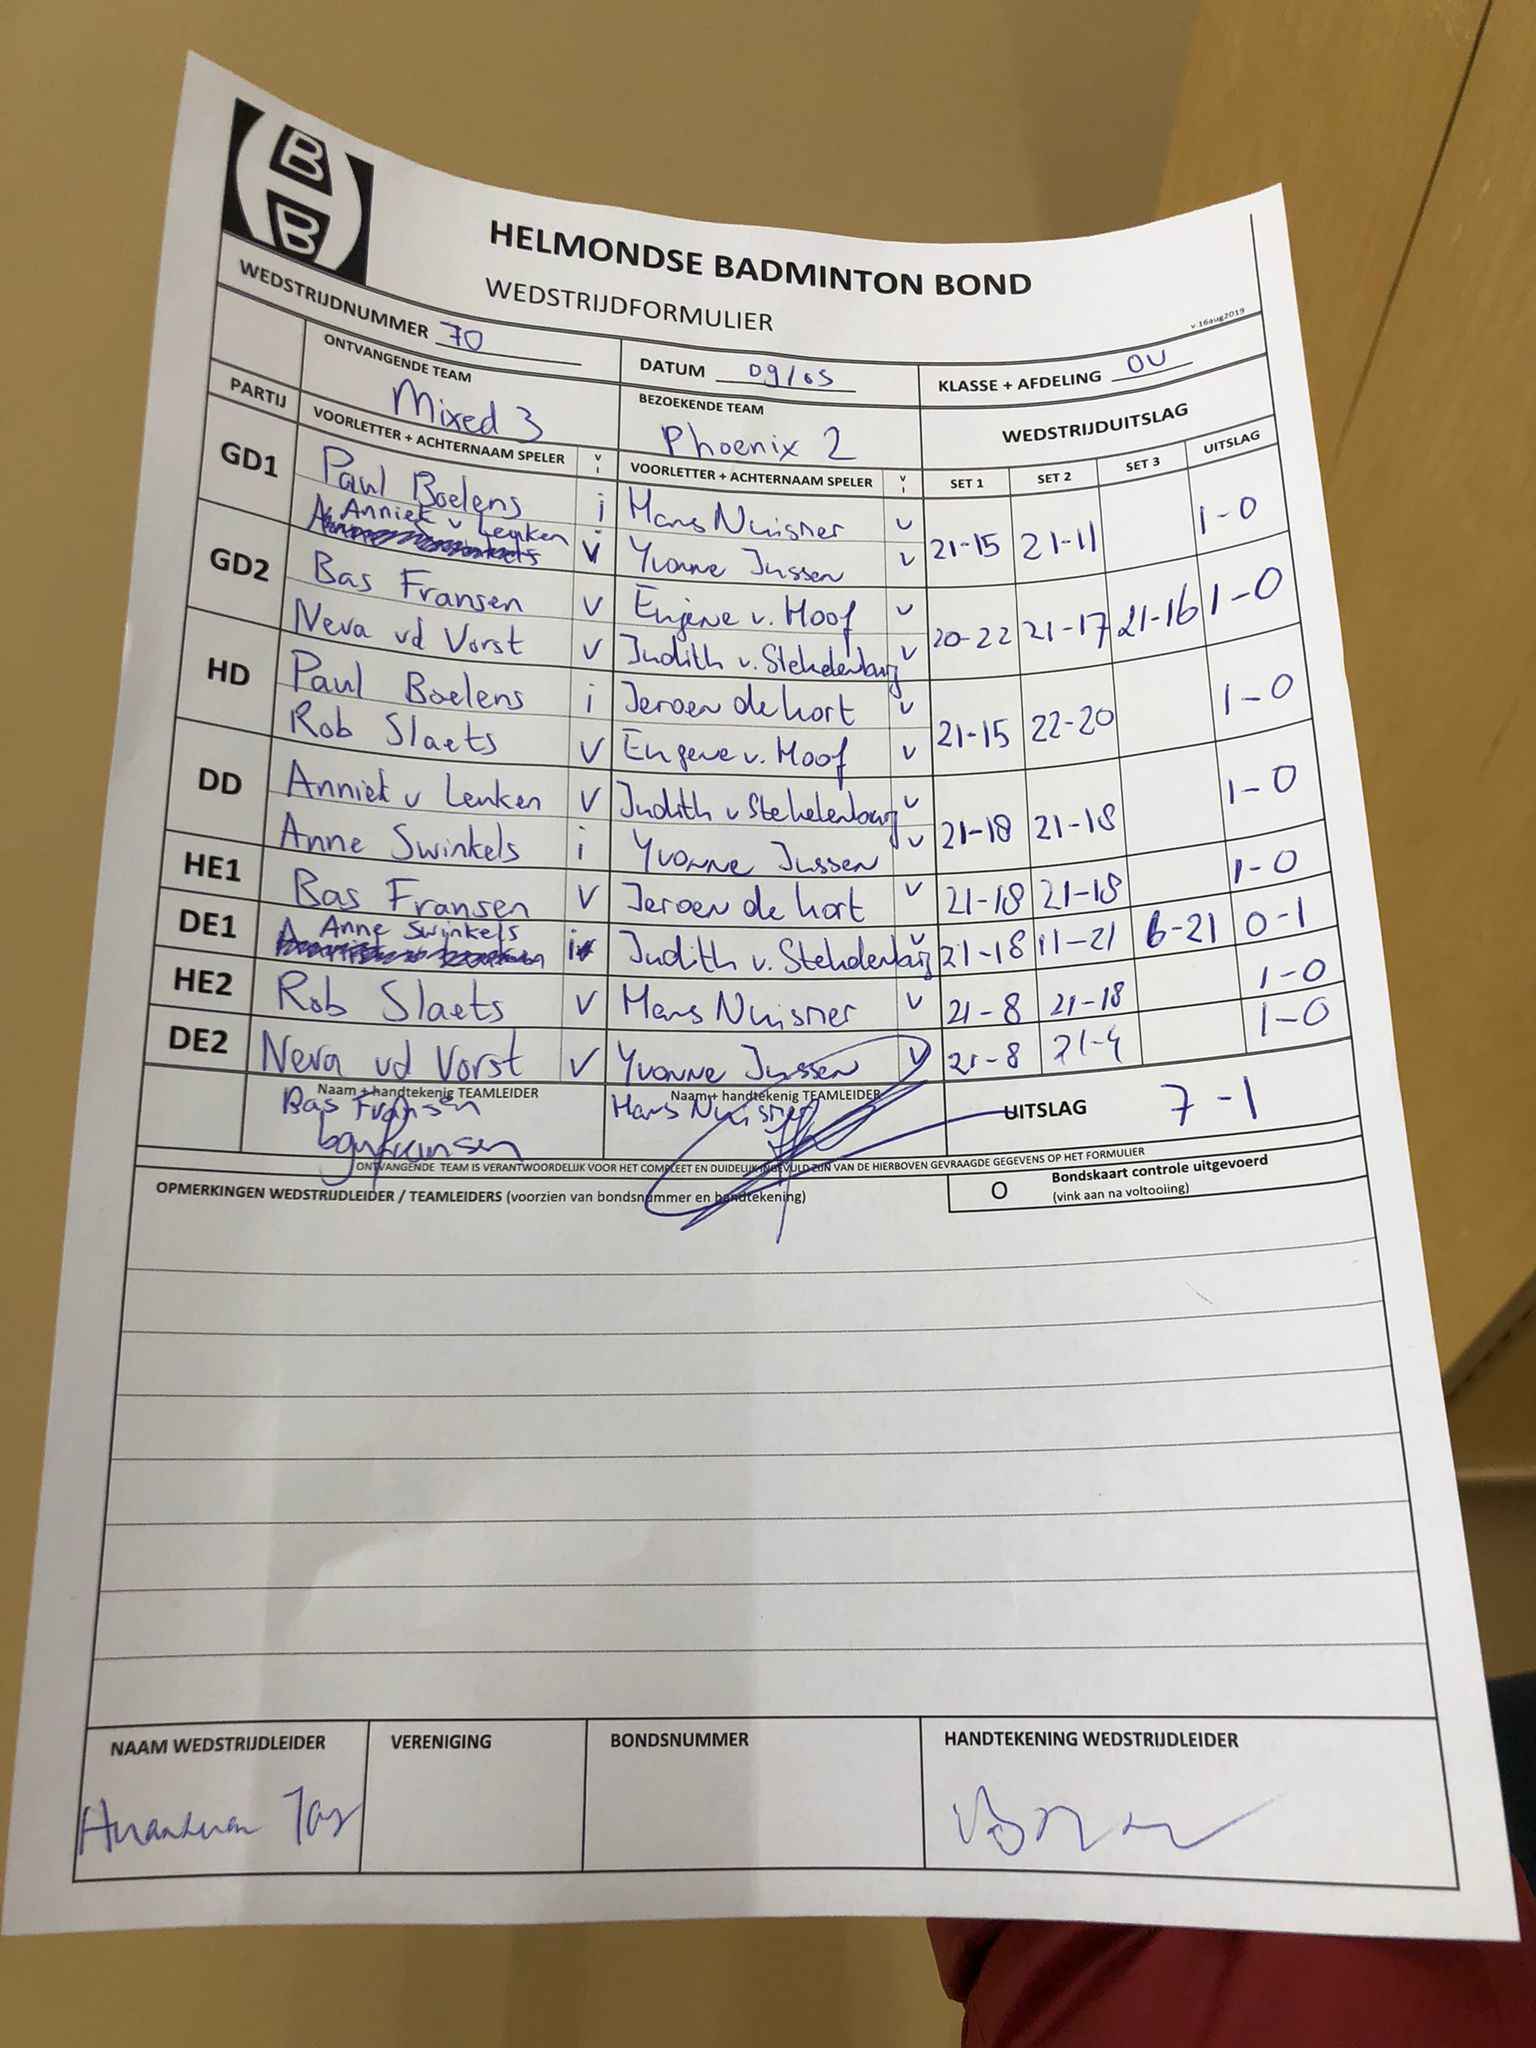 B
B
HELMONDSE BADMINTON BOND
WEDSTRIJDFORMULIER
v.16aug2019
WEDSTRIJDNUMMER 70
DATUM 09/05
KLASSE + AFDELING OV
ONTVANGENDE TEAM
Mixed 3
BEZOEKENDE TEAM
Phoenix 2
WEDSTRIJDUITSLAG
PARTIJ VOORLETTER + ACHTERNAAM SPELER V I VOORLETTER + ACHTERNAAM SPELER V I SET 1 SET 2 SET 3 UITSLAG
GD1 Paul Boelens i Hans Nuisner v 21-15 21-11 1-0
Anniek v Leuken v Yvonne Jussen v
GD2 Bas Fransen v Eugene v. Hoof v 20-22 21-17 21-16 1-0
Neva vd Vorst v Judith v. Stekelenburg v
HD Paul Boelens i Jeroen de kort v 21-15 22-20 1-0
Rob Slaets v Eugene v. Hoof v
DD Anniek v Leuken v Judith v Stekelenburg v 21-18 21-18 1-0
Anne Swinkels i Yvonne Jussen v
HE1 Bas Fransen v Jeroen de kort v 21-18 21-18 1-0
DE1 Anne Swinkels i Judith v. Stekelenburg v 21-18 11-21 6-21 0-1
HE2 Rob Slaets v Hans Nuisner v 21-8 21-18 1-0
DE2 Neva vd Vorst v Yvonne Jussen v 21-8 21-4 1-0
Naam + handtekenig TEAMLEIDER
Bas Fransen
Naam + handtekenig TEAMLEIDER
Hans Nuisner
UITSLAG 7-1
ONTVANGENDE TEAM IS VERANTWOORDELIJK VOOR HET COMPLEET EN DUIDELIJK INGEVULD ZIJN VAN DE HIERBOVEN GEVRAAGDE GEGEVENS OP HET FORMULIER
OPMERKINGEN WEDSTRIJDLEIDER / TEAMLEIDERS (voorzien van bondsnummer en handtekening)
O Bondskaart controle uitgevoerd
(vink aan na voltooiing)
NAAM WEDSTRIJDLEIDER
VERENIGING
BONDSNUMMER
HANDTEKENING WEDSTRIJDLEIDER